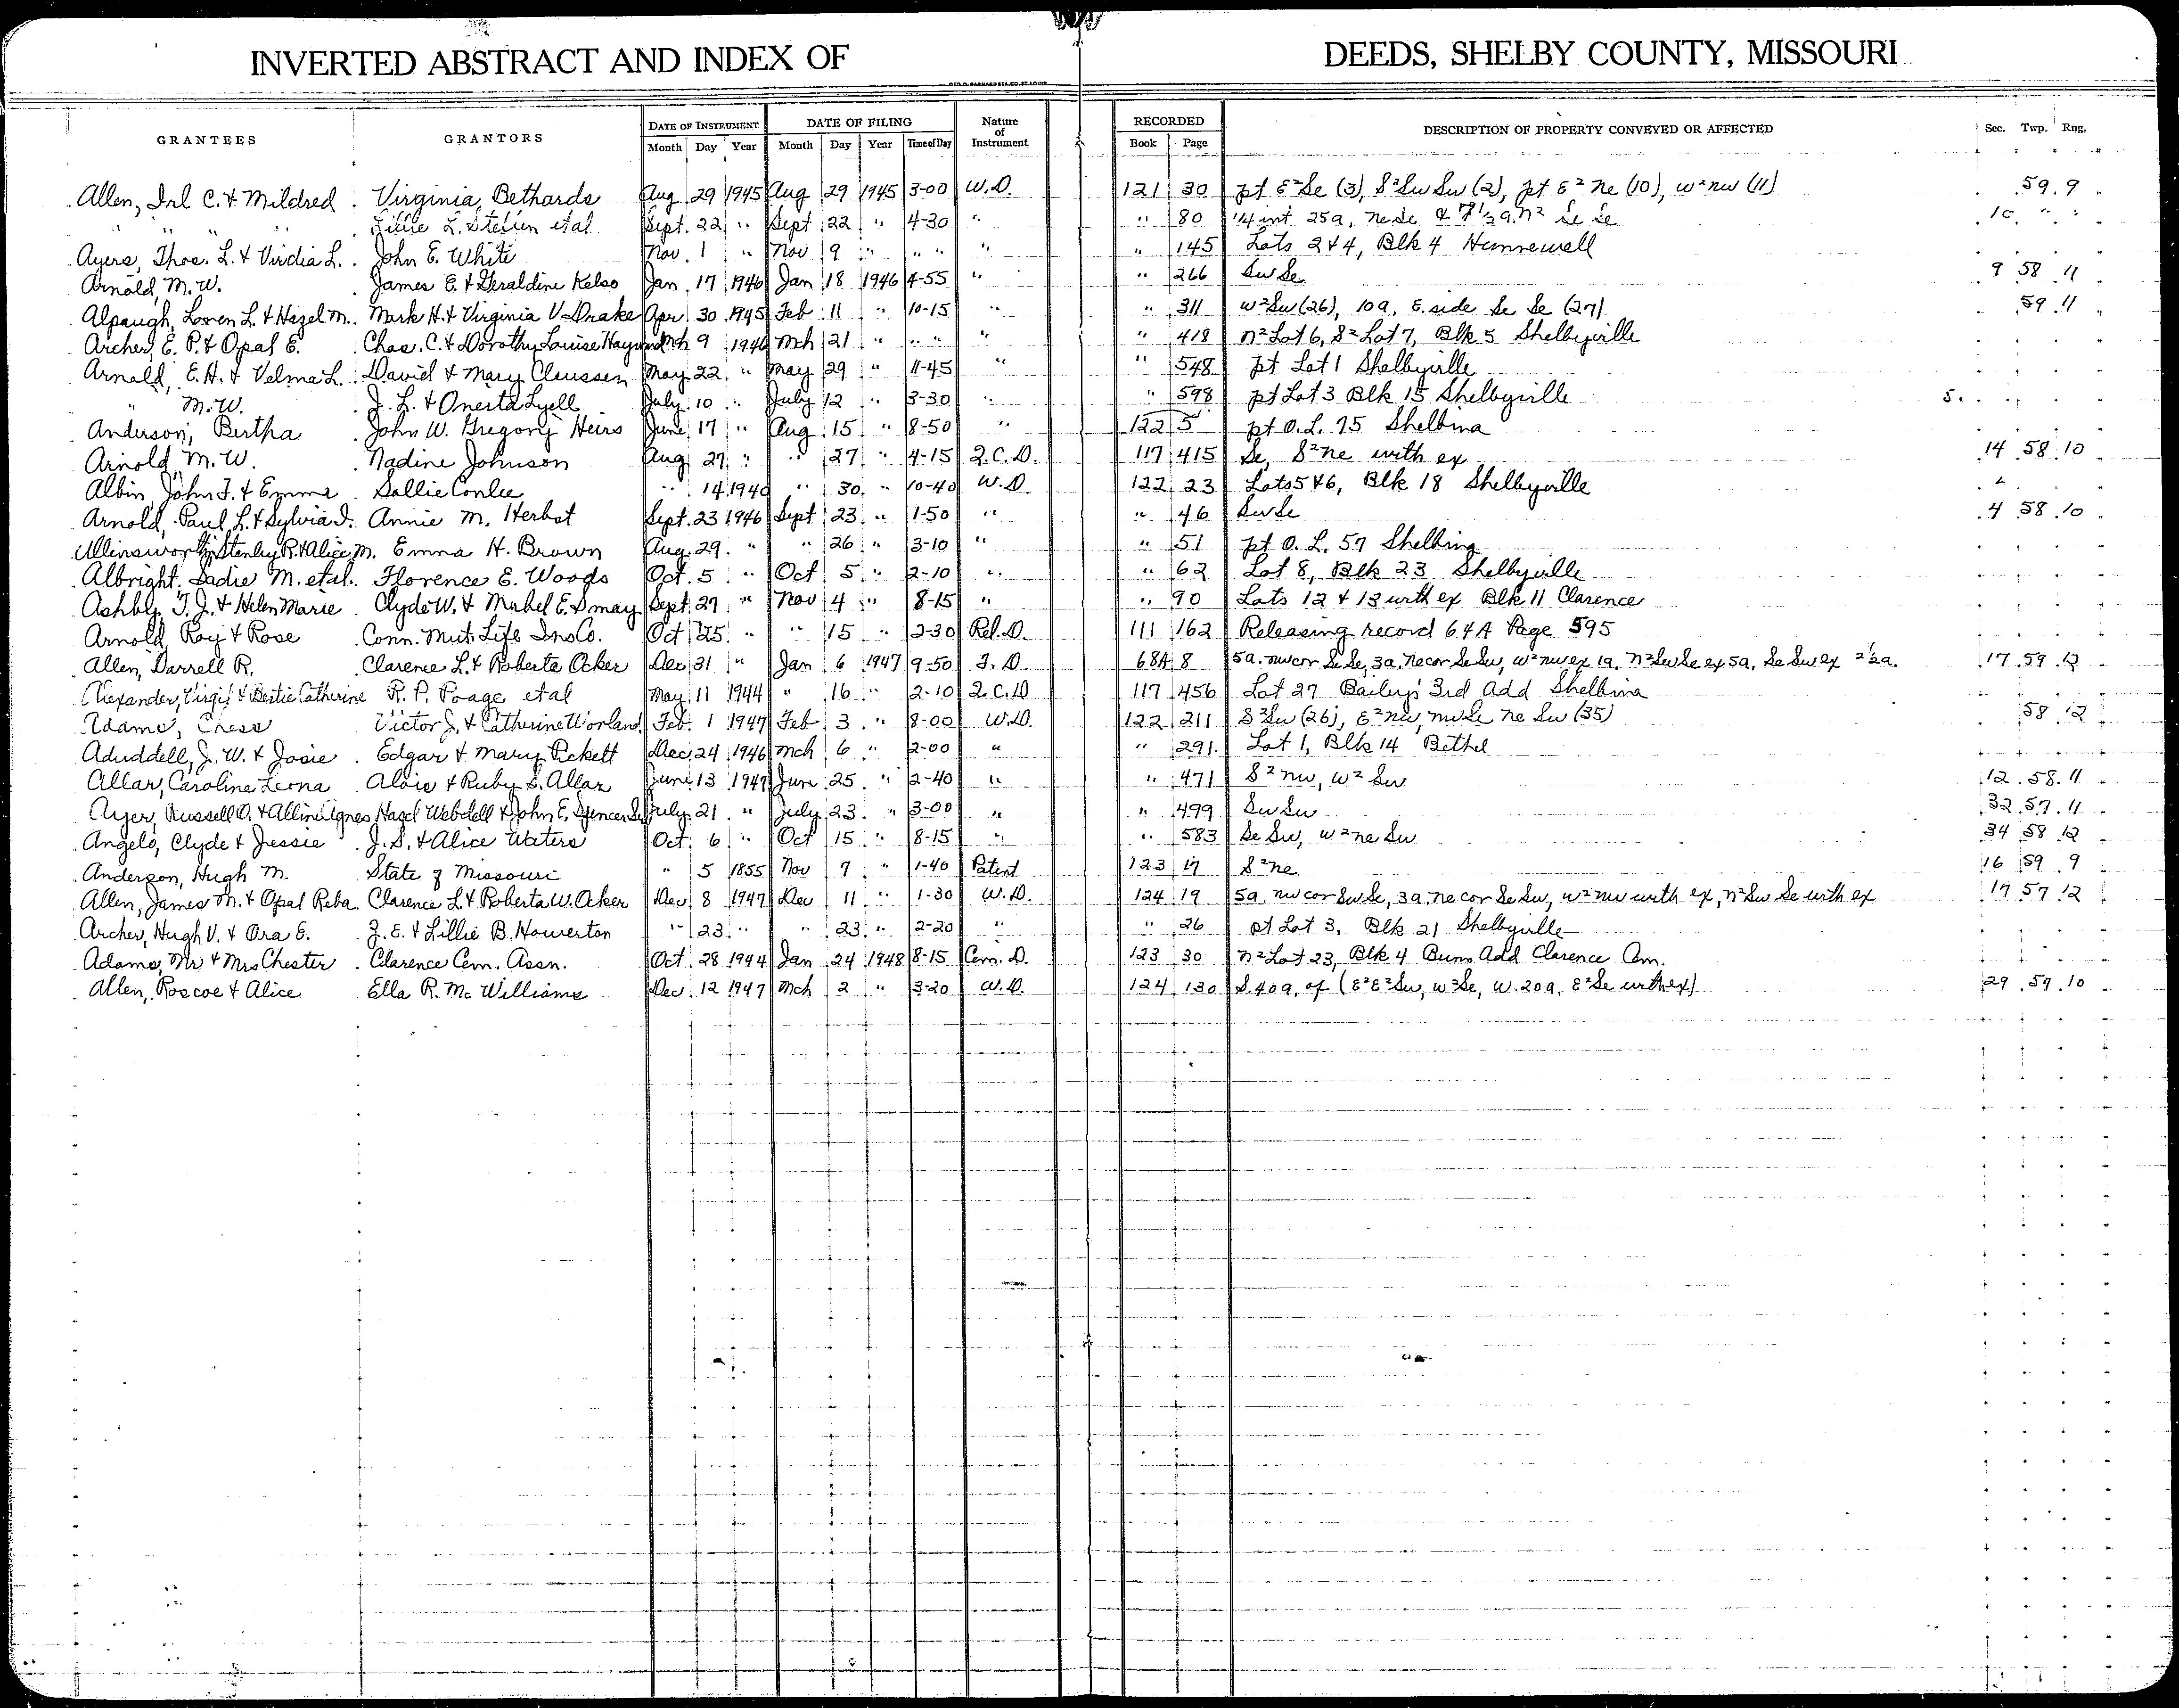 INVERTED ABSTRACT AND INDEX OF DEEDS, SHELBY COUNTY, MISSOURI
GEO. D. BARNARD STA. CO. ST. LOUIS
GRANTEES GRANTORS DATE OF INSTRUMENT DATE OF FILING Nature of Instrument RECORDED DESCRIPTION OF PROPERTY CONVEYED OR AFFECTED Sec. Twp. Rng.
Month Day Year Month Day Year Time of Day Book Page
Allen, Irl C. & Mildred Virginia Bethards Aug 29 1945 Aug 29 1945 3-00 W.D. 121 30 pt E²Se (3), S²Sw Sw (2), pt E² Ne (10), W²nw (11) 59 9
" " " " Lillie L. et al Sept. 22 " Sept 22 " 4-30 " " 80 1/4 int 25a, Ne Se & 7 1/2 a. N² Se Se " "
Ayers, Thos. L. & Virdia L. John E. White Nov. 1 " Nov 9 " " " " " 145 Lots 2 & 4, Blk 4 Hunnewell
Arnold, M. W. James E. & Geraldine Kelso Jan. 17 1946 Jan 18 1946 4-55 " " 266 Sw Se 9 58 11
Alpaugh, Loren L. & Hazel M. Mark H. & Virginia V. Drake Apr 30 1945 Feb 11 " 10-15 " " 311 W²Sw (26), 10a, E. side Se Se (27) 59 11
Archer, E. P. & Opal E. Chas. C. & Dorothy Louise Mch 9 1946 Mch 21 " " " " " 418 N² Lot 6, S² Lot 7, Blk 5 Shelbyville
Arnold, E. H. & Velma L. David & Mary Claussen May 22 " May 29 " 11-45 " " 548 pt Lot 1 Shelbyville
" M. W. J. L. & Onesta Lyell July 10 " July 12 " 3-30 " " 598 pt Lot 3 Blk 15 Shelbyville
Anderson, Bertha John W. Gregory Heirs June 17 " Aug. 15 " 8-50 " 122 5 pt O. L. 75 Shelbina
Arnold, M. W. Nadine Johnson Aug 27 " " 27 " 4-15 Q. C. D. 117 415 Se, S²Ne with ex 14 58 10
Albin, John F. & Emma Sallie Conlee " 14 1940 " 30 " 10-40 W.D. 122 23 Lots 5 & 6, Blk 18 Shelbyville
Arnold, Paul L. & Sylvia I. Annie M. Herbst Sept. 23 1946 Sept 23 " 1-50 " " 46 Sw Se 4 58 10
Stanley R. & Alice M. Emma H. Brown Aug. 29 " " 26 " 3-10 " " 51 pt O. L. 57 Shelbina
Albright, Sadie M. et al. Florence E. Woods Oct. 5 " Oct 5 " 2-10 " " 62 Lot 8, Blk 23 Shelbyville
Ashbly, T. J. & Helen Marie Clyde W. & Mabel E. Smay Sept. 27 " Nov 4 " 8-15 " " 90 Lots 12 & 13 with ex Blk 11 Clarence
Arnold, Roy & Rose Conn. Mut. Life Ins Co. Oct 25 " " 15 " 2-30 Rel. D. 111 162 Releasing record 64A Page 595
Allen, Darrell R. Clarence L. & Roberta Acker Dec 31 " Jan 6 1947 9-50 T. D. 68A 8 5a. nw cor Se, 3a, ne cor Se Sw, W²nw ex 1a, N²Sw Se ex 5a, Se Sw ex 2 1/2 a. 17 59 12
Alexander, Virgil & Bertie Catherine R. P. Poage et al May 11 1944 " 16 " 2-10 Q.C.D 117 456 Lot 27 Bailey's 3rd Add Shelbina
Adams, Cress Victor J. & Catherine Worland Feb. 1 1947 Feb 3 " 8-00 W.D. 122 211 S²Sw (26), E²nw, nw Se ne Sw (35) 58 12
Aduddell, J. W. & Josie Edgar & Mary Pickett Dec. 24 1946 Mch 6 " 2-00 " " 291 Lot 1, Blk 14 Bethel
Allar, Caroline Leona Alois & Ruby S. Allar June 13 1947 June 25 " 2-40 " " 471 S² nw, W² Sw 12 58 11
Ayer, Russell O. & Alline Agnes Hazel Webdell & John E. Spencer July 21 " July 23 " 3-00 " " 499 Sw Sw 32 57 11
Angelo, Clyde & Jessie J. S. & Alice Waters Oct. 6 " Oct 15 " 8-15 " " 583 Se Sw, W² ne Sw 34 58 12
Anderson, Hugh M. State of Missouri " 5 1855 Nov 7 " 1-40 Patent 123 17 S²ne 16 59 9
Allen, James M. & Opal Reba Clarence L. & Roberta W. Acker Dec. 8 1947 Dec 11 " 1-30 W.D. 124 19 5a, nw cor Sw Se, 3a, ne cor Se Sw, W² nw with ex, N²Sw Se with ex 17 57 12
Archer, Hugh V. & Ora E. Z. E. & Lillie B. Howerton " 23 " " 23 " 2-20 " " 26 pt Lot 3, Blk 21 Shelbyville
Adams, Mr & Mrs Chester Clarence Cem. Assn. Oct. 28 1944 Jan 24 1948 8-15 Cem. D. 123 30 N² Lot 23, Blk 4 Add Clarence Cem.
Allen, Roscoe & Alice Ella R. McWilliams Dec. 12 1947 Mch 2 " 3-20 W.D. 124 130 S. 40a, of (E²E²Sw, W²Se, W. 20a, E²Se with ex) 29 57 10